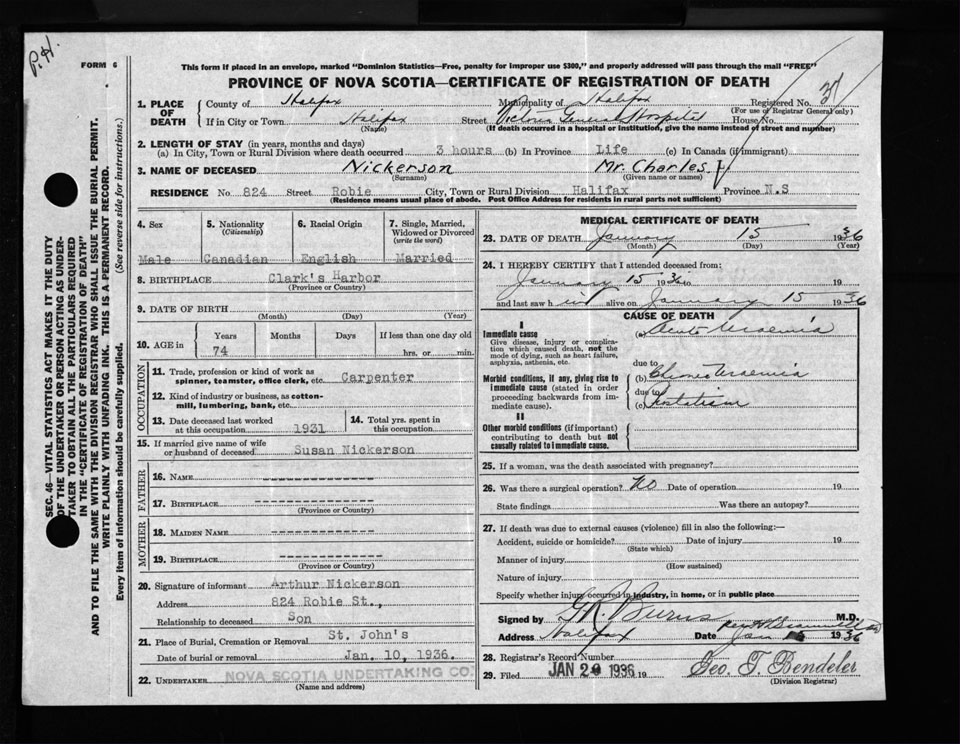 P.H.
FORM 6
This form if placed in an envelope, marked "Dominion Statistics—Free, penalty for improper use $300," and properly addressed will pass through the mail "FREE"
PROVINCE OF NOVA SCOTIA—CERTIFICATE OF REGISTRATION OF DEATH
1. PLACE OF DEATH
County of Halifax Municipality of Halifax Registered No. 37
(For use of Registrar General only)
If in City or Town Halifax Street Victoria General Hospital House No.
(Name) (If death occurred in a hospital or institution, give the name instead of street and number)
2. LENGTH OF STAY (in years, months and days)
(a) In City, Town or Rural Division where death occurred 3 hours (b) In Province Life (c) In Canada (if immigrant)
3. NAME OF DECEASED Nickerson Mr. Charles
(Surname) (Given name or names)
RESIDENCE No. 824 Street Robie City, Town or Rural Division Halifax Province N.S
(Residence means usual place of abode. Post Office Address for residents in rural parts not sufficient)
4. Sex
Male
5. Nationality (Citizenship)
Canadian
6. Racial Origin
English
7. Single, Married, Widowed or Divorced (write the word)
Married
8. BIRTHPLACE Clark's Harbor
(Province or Country)
9. DATE OF BIRTH
(Month) (Day) (Year)
10. AGE in
Years Months Days If less than one day old
74 hrs. or min.
OCCUPATION
11. Trade, profession or kind of work as spinner, teamster, office clerk, etc. Carpenter
12. Kind of industry or business, as cotton-mill, lumbering, bank, etc.
13. Date deceased last worked at this occupation 1931
14. Total yrs. spent in this occupation
15. If married give name of wife or husband of deceased Susan Nickerson
FATHER
16. NAME
17. BIRTHPLACE
(Province or Country)
MOTHER
18. MAIDEN NAME
19. BIRTHPLACE
(Province or Country)
20. Signature of informant Arthur Nickerson
Address 824 Robie St.,
Relationship to deceased Son
21. Place of Burial, Cremation or Removal St. John's
Date of burial or removal Jan. 10, 1936.
22. UNDERTAKER NOVA SCOTIA UNDERTAKING CO.
(Name and address)
MEDICAL CERTIFICATE OF DEATH
23. DATE OF DEATH January 15 1936
(Month) (Day) (Year)
24. I HEREBY CERTIFY that I attended deceased from:
January 15 1936 to 19
and last saw h im alive on January 15 1936
CAUSE OF DEATH
I
Immediate cause
Give disease, injury or complication which caused death, not the mode of dying, such as heart failure, asphyxia, asthenia, etc.
(a) Acute Uraemia
due to
Morbid conditions, if any, giving rise to immediate cause (stated in order proceeding backwards from immediate cause).
(b) Chronic Uraemia
due to
(c)
II
Other morbid conditions (if important) contributing to death but not causally related to immediate cause.
25. If a woman, was the death associated with pregnancy?
26. Was there a surgical operation? No Date of operation 19
State findings Was there an autopsy?
27. If death was due to external causes (violence) fill in also the following:—
Accident, suicide or homicide? Date of injury 19
(State which)
Manner of injury
(How sustained)
Nature of injury
Specify whether injury occurred in industry, in home, or in public place
Signed by G.R. Burns M.D.
Address Halifax Date Jan 1936
28. Registrar's Record Number
29. Filed JAN 20 1936 19 Geo. T Bendeler
(Division Registrar)
SEC. 46—VITAL STATISTICS ACT MAKES IT THE DUTY
OF THE UNDERTAKER OR PERSON ACTING AS UNDER-
TAKER TO OBTAIN ALL THE PARTICULARS REQUIRED
IN THE "CERTIFICATE OF REGISTRATION OF DEATH"
AND TO FILE THE SAME WITH THE DIVISION REGISTRAR WHO SHALL ISSUE THE BURIAL PERMIT.
WRITE PLAINLY WITH UNFADING INK. THIS IS A PERMANENT RECORD.
Every item of information should be carefully supplied. (See reverse side for instructions.)